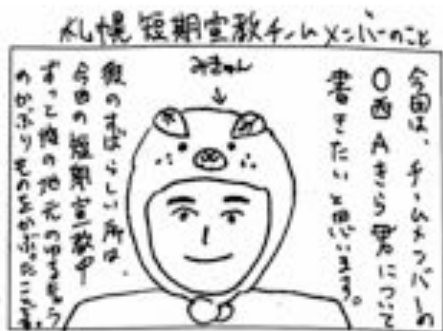 札幌短期宣教チームメンバーのこと
今回は、チームメンバーの
〇西Aきら君について
書きたいと思います。
みきゃん
彼のすばらしい所は、
今回の短期宣教中
ずっと彼の地元のゆるきゃら
のかぶりものをかぶったことです。